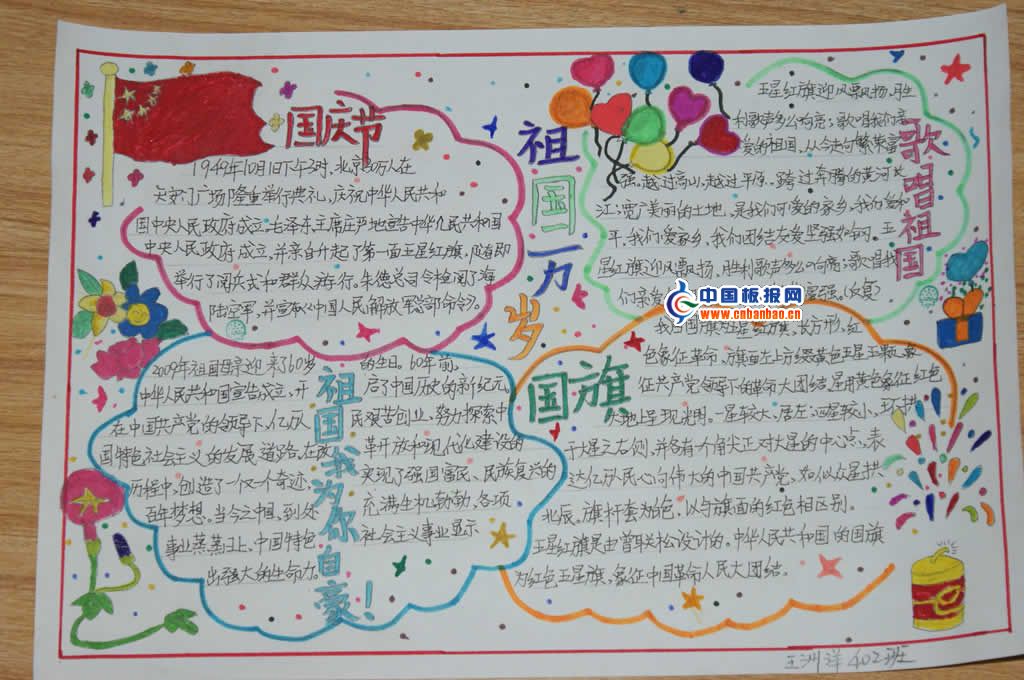 国庆节
1949年10月1日下午3时,北京30万人在
天安门广场隆重举行典礼,庆祝中华人民共和
国中央人民政府成立。毛泽东主席庄严地宣告中华人民共和国
中央人民政府成立,并亲自升起了第一面五星红旗,随即
举行了阅兵式和群众游行。朱德总司令检阅了海
陆空军,并宣布《中国人民解放军总部命令》。
祖国万岁
歌唱祖国
五星红旗迎风飘扬,胜
利歌声多么响亮;歌唱我们亲
爱的祖国,从今走向繁荣富
强。越过高山,越过平原,跨过奔腾的黄河长
江;宽广美丽的土地,是我们可爱的家乡,我们爱和
平,我们爱家乡,我们团结友爱坚强如钢。五
星红旗迎风飘扬,胜利歌声多么响亮;歌唱我
们亲爱 富强。(反复)
中国板报网
www.cnbanbao.cn
祖国我为你自豪!
2009年祖国母亲迎来了60岁的生日。60年前,
中华人民共和国宣告成立,开启了中国历史的新纪元。
在中国共产党的领导下,亿万民艰苦创业,努力探索中
国特色社会主义的发展道路,在改革开放和现代化建设的
历程中,创造了一个又一个奇迹,实现了强国富民、民族复兴的
百年梦想。当今之中国,到处充满生机勃勃,各项
事业蒸蒸日上,中国特色社会主义事业显示
出强大的生命力。
国旗
我国国旗为五星红旗,长方形,红
色象征革命,旗面左上方缀黄色五星五颗,象
征共产党领导下的革命大团结,星用黄色象征红色
大地上呈现光明。一星较大,居左;四星较小,环拱
于大星之右侧,并各有一个角尖正对大星的中心点,表
达亿万人民心向伟大的中国共产党,如似众星拱
北辰。旗杆套为白色,以与旗面的红色相区别。
五星红旗是由曾联松设计的。中华人民共和国的国旗
为红色五星旗,象征中国革命人民大团结。
王洲洋 402班